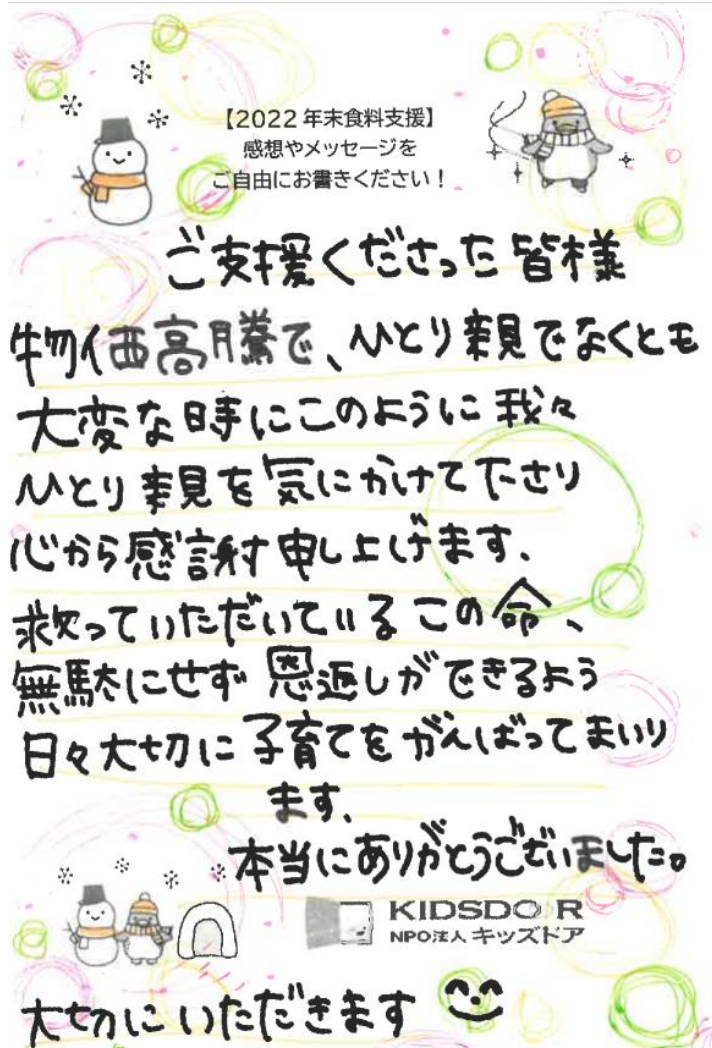 【2022年末食料支援】
感想やメッセージを
ご自由にお書きください！
ご支援くださった皆様
物価高騰で、ひとり親でなくとも
大変な時にこのように我々
ひとり親を気にかけて下さり
心から感謝申し上げます、
救っていただいているこの命、
無駄にせず恩返しができるよう
日々大切に子育てをがんばってまいり
ます、
本当にありがとうございました。
KIDSDOOR
NPO法人 キッズドア
大切にいただきます